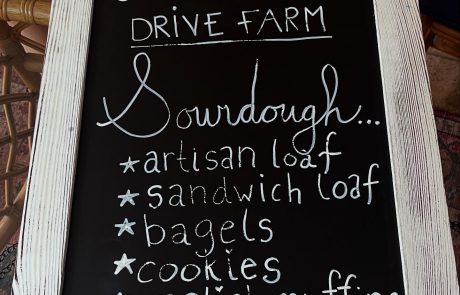 DRIVE FARM
Sourdough...
* artisan loaf
* sandwich loaf
* bagels
* cookies